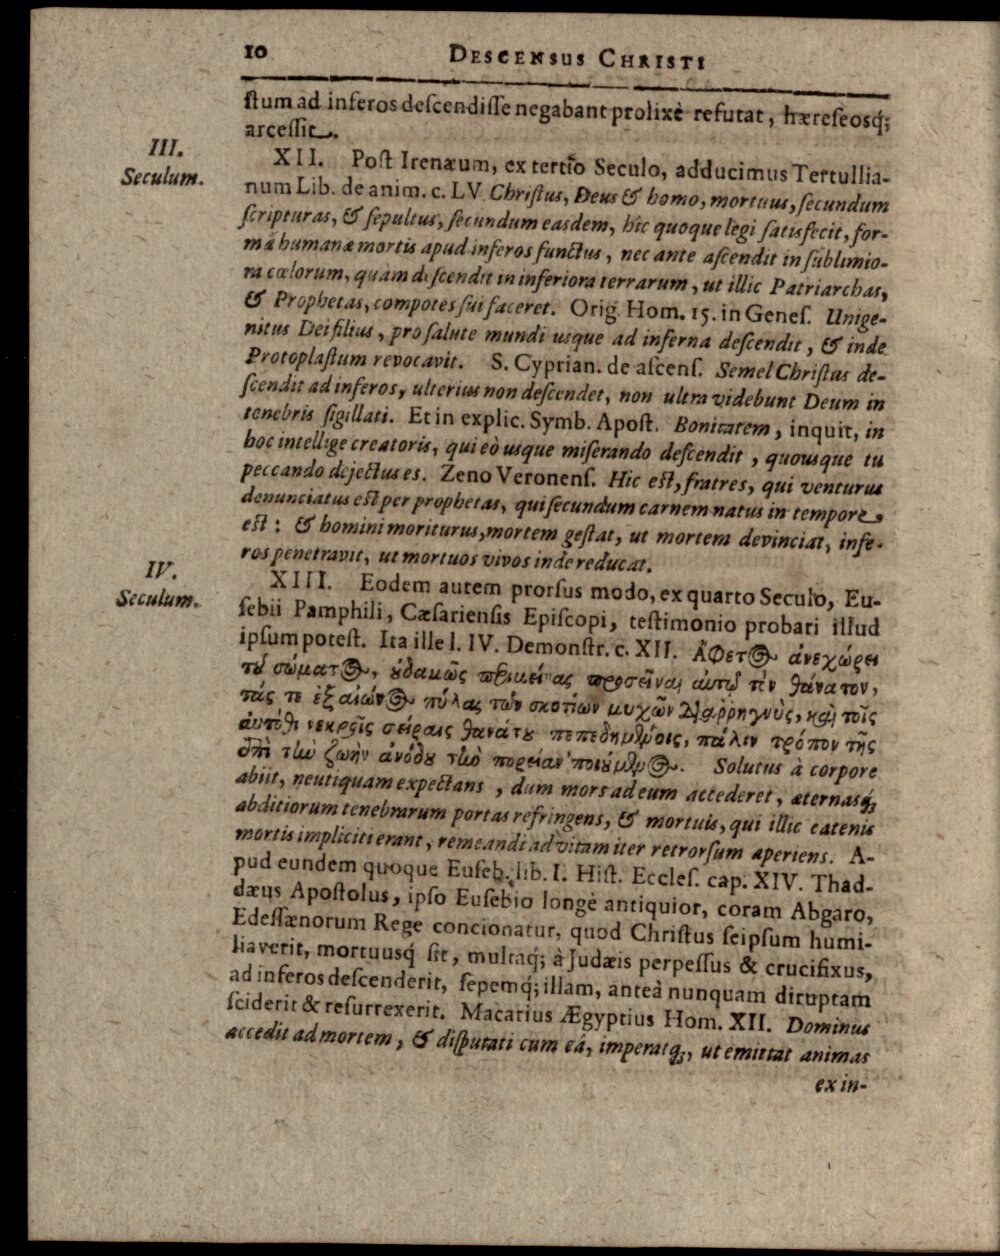 10 DESCENSUS CHRISTI
ſtum ad inferos deſcendiſſe negabant prolixè refutat, hæreſeosq́;
arceſſit.
III.
Seculum.
XII. Poſt Irenæum, ex tertio Seculo, adducimus Tertullia-
num Lib. de anim. c. LV. Chriſtus, Deus & homo, mortuus, ſecundum
ſcripturas, & ſepultus, ſecundum easdem, hîc quoque legi ſatisfecit, for-
mâ humanæ mortis apud inferos functus, nec ante aſcendit in ſublimio-
ra cœlorum, quàm deſcendit in inferiora terrarum, ut illic Patriarchas,
& Prophetas, compotes ſui faceret. Orig. Hom. 15. in Geneſ. Unige-
nitus Dei filius, pro ſalute mundi usque ad inferna deſcendit, & inde
Protoplaſtum revocavit. S. Cyprian. de aſcenſ. Semel Chriſtus de-
ſcendit ad inferos, ulterius non deſcendet, non ultra videbunt Deum in
tenebris ſigillati. Et in explic. Symb. Apoſt. Bonitatem, inquit, in
hoc intellige creatoris, qui eò usque miſerando deſcendit, quousque tu
peccando dejectus es. Zeno Veronenſ. Hic eſt, fratres, qui venturus
denunciatus eſt per prophetas, qui ſecundum carnem natus in tempore
eſt: & homini moriturus, mortem geſtat, ut mortem devinciat, infe-
ros penetravit, ut mortuos vivos inde reducat.
IV.
Seculum.
XIII. Eodem autem prorſus modo, ex quarto Seculo, Eu-
ſebii Pamphili, Cæſarienſis Epiſcopi, teſtimonio probari illud
ipſum poteſt. Ita ille l. IV. Demonſtr. c. XII. Ἄφετος ἀνεχώρει
τοῦ σώματος, οὐδαμῶς περιμείνας προσεῖναι αὐτῷ τὸν θάνατον,
τάς τε ἐξ αἰῶνος πύλας τῶν σκοτίων μυχῶν διαρρηγνὺς, καὶ τοῖς
αὐτόθι νεκροῖς σείραις θανάτου πεπεδημένοις, πάλιν τρόπον τῆς
ἐπὶ τὴν ζωὴν ἀνόδου τὴν πορείαν ποιούμενος. Solutus à corpore
abiit, neutiquam expectans, dum mors ad eum accederet, æternasq́;
abditiorum tenebrarum portas refringens, & mortuis, qui illic catenis
mortis impliciti erant, remeandi ad vitam iter retrorſum aperiens. A-
pud eundem quoque Euſeb. lib. I. Hiſt. Eccleſ. cap. XIV. Thad-
dæus Apoſtolus, ipſo Euſebio longè antiquior, coram Abgaro,
Edeſſænorum Rege concionatur, quod Chriſtus ſeipſum humi-
liaverit, mortuusq́ ſit, multaq́; à Judæis perpeſſus & crucifixus,
ad inferos deſcenderit, ſepemq́; illam, anteà nunquam diruptam
ſciderit & reſurrexerit. Macarius Ægyptius Hom. XII. Dominus
accedit ad mortem, & diſputati cum eâ, imperatq́;, ut emittat animas
ex in-